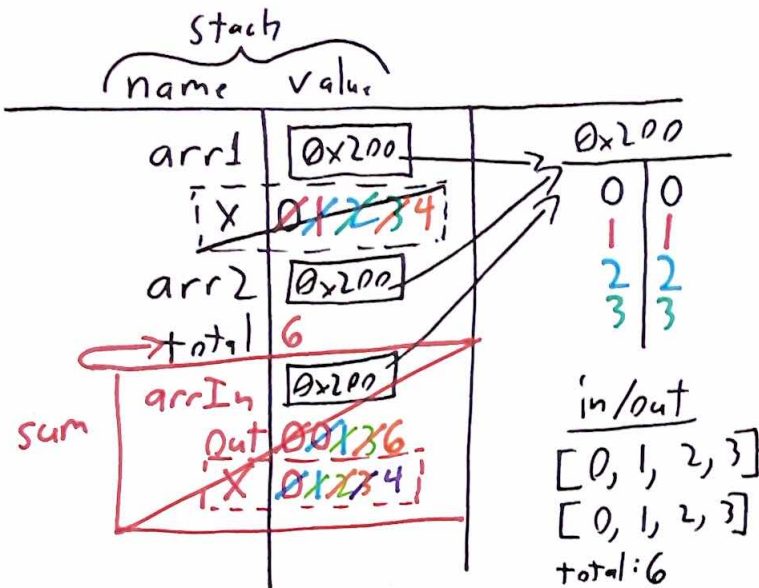 stach
name value
arr1 0x200
x 0 1 2 3 4
arr2 0x200
total 6
arrIn 0x200
out 0 0 1 3 6
x 0 1 2 3 4
sum
0x200
0 0
1 1
2 2
3 3
in/out
[0, 1, 2, 3]
[0, 1, 2, 3]
total: 6